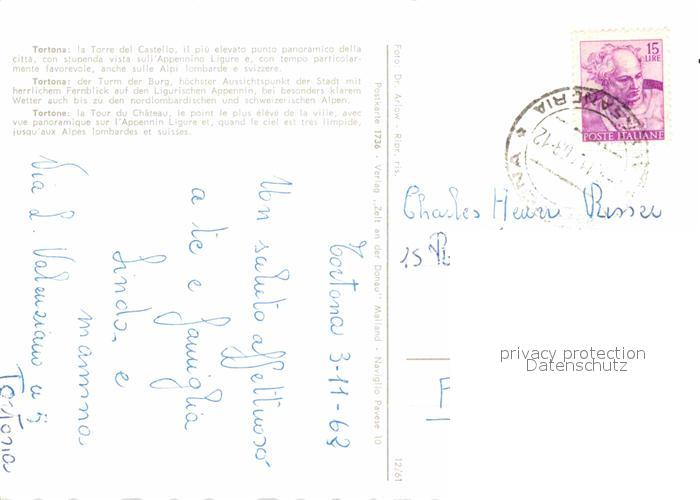 Tortona: la Torre del Castello, il più elevato punto panoramico della
città, con stupenda vista sull'Appennino Ligure e, con tempo particolar-
mente favorevole, anche sulle Alpi lombarde e svizzere.
Tortona: der Turm der Burg, höchster Aussichtspunkt der Stadt mit
herrlichem Fernblick auf den Ligurischen Appennin, bei besonders klarem
Wetter auch bis zu den nordlombardischen und schweizerischen Alpen.
Tortona: la Tour du Château, le point le plus élevé de la ville, avec
vue panoramique sur l'Appennin Ligure et, quand le ciel est tres limpide,
jusqu'aux Alpes lombardes et suisses.
Foto: Dr. Arlow - Ripr. ris.
Postkarte 1736 - Verlag „Zelt an der Donau" Mailand - Naviglio Pavese 10
12/61
15
LIRE
POSTE ITALIANE
Charles Henri Risser
15 R
F
Tortona 3-11-62
Un saluto affettuoso
a te e famiglia
Linda, e
mamma
Via L. Valenziano
Tortona
privacy protection
Datenschutz